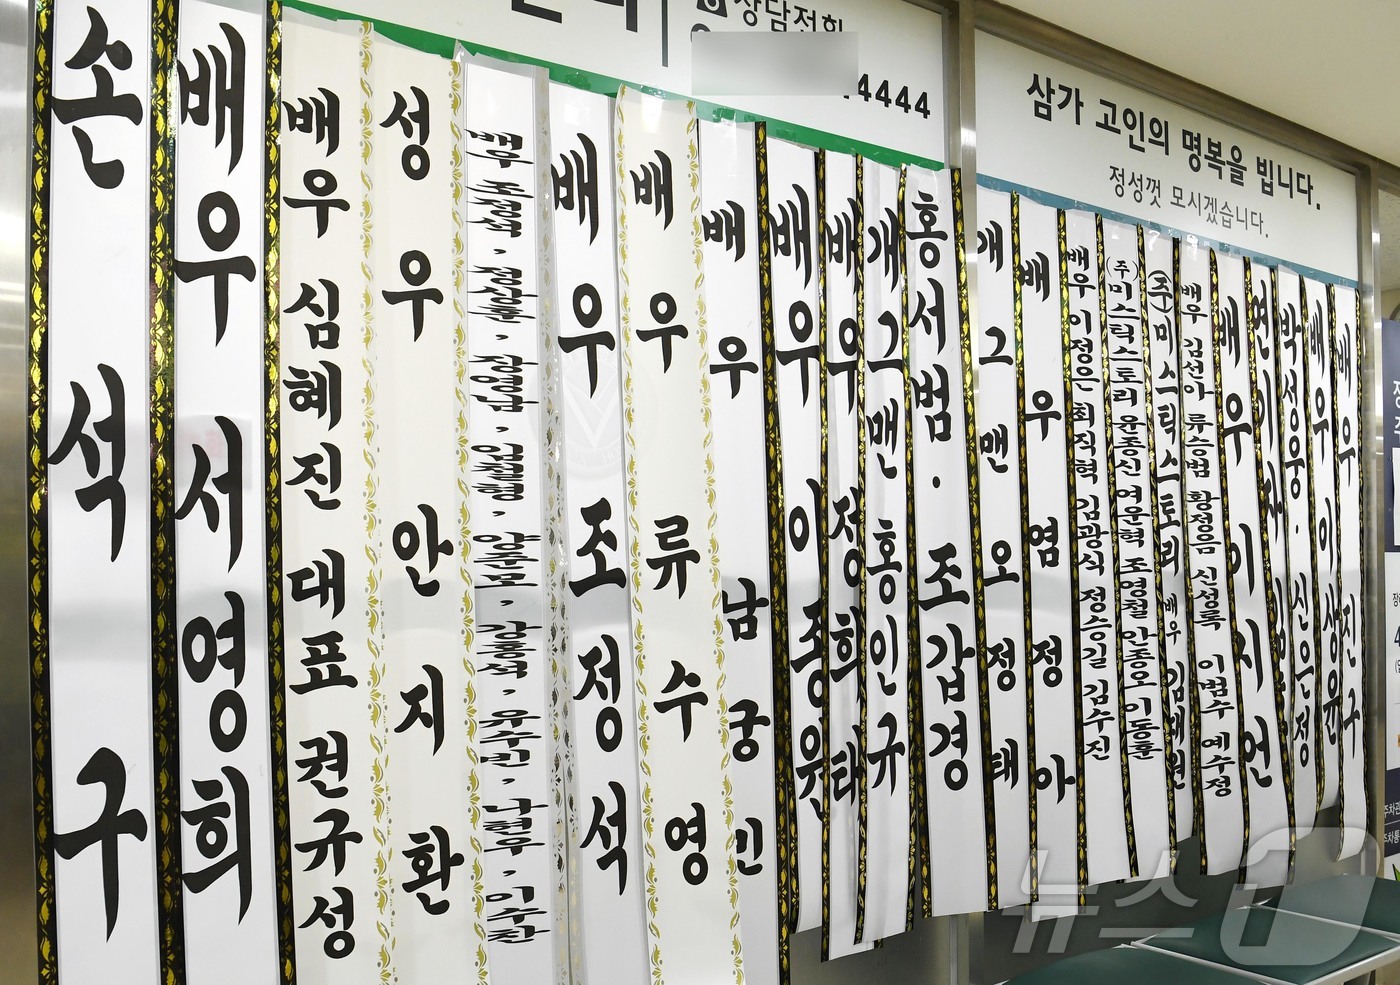 상담전화
4444
삼가 고인의 명복을 빕니다.
정성껏 모시겠습니다.
손석구
배우 서영희
배우 심혜진 대표 권규성
성우 안지환
배우 조정석
배우 류수영
배우 남궁민
배우 이종원
배우 정희태
개그맨 홍인규
홍서범·조갑경
개그맨 오정태
배우 염정아
배우 이정은 최직혁 김광식 정승길 김수진
(주)미스틱스토리 윤종신 여운혁 조영철 안종오 이동훈
(주)미스틱스토리 배우 김태원
배우 김선아 류승범 황정음 신성록 이범수 예수정
배우 이시언
박성웅·신은정
배우 이상윤
배우 진구
뉴스1